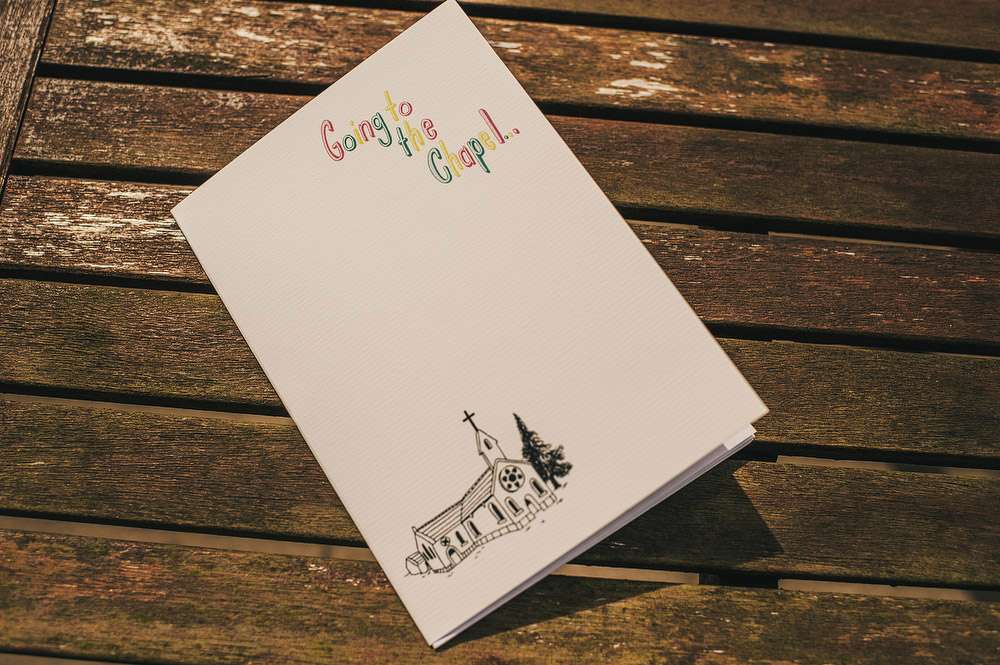 Going to
the
Chapel...